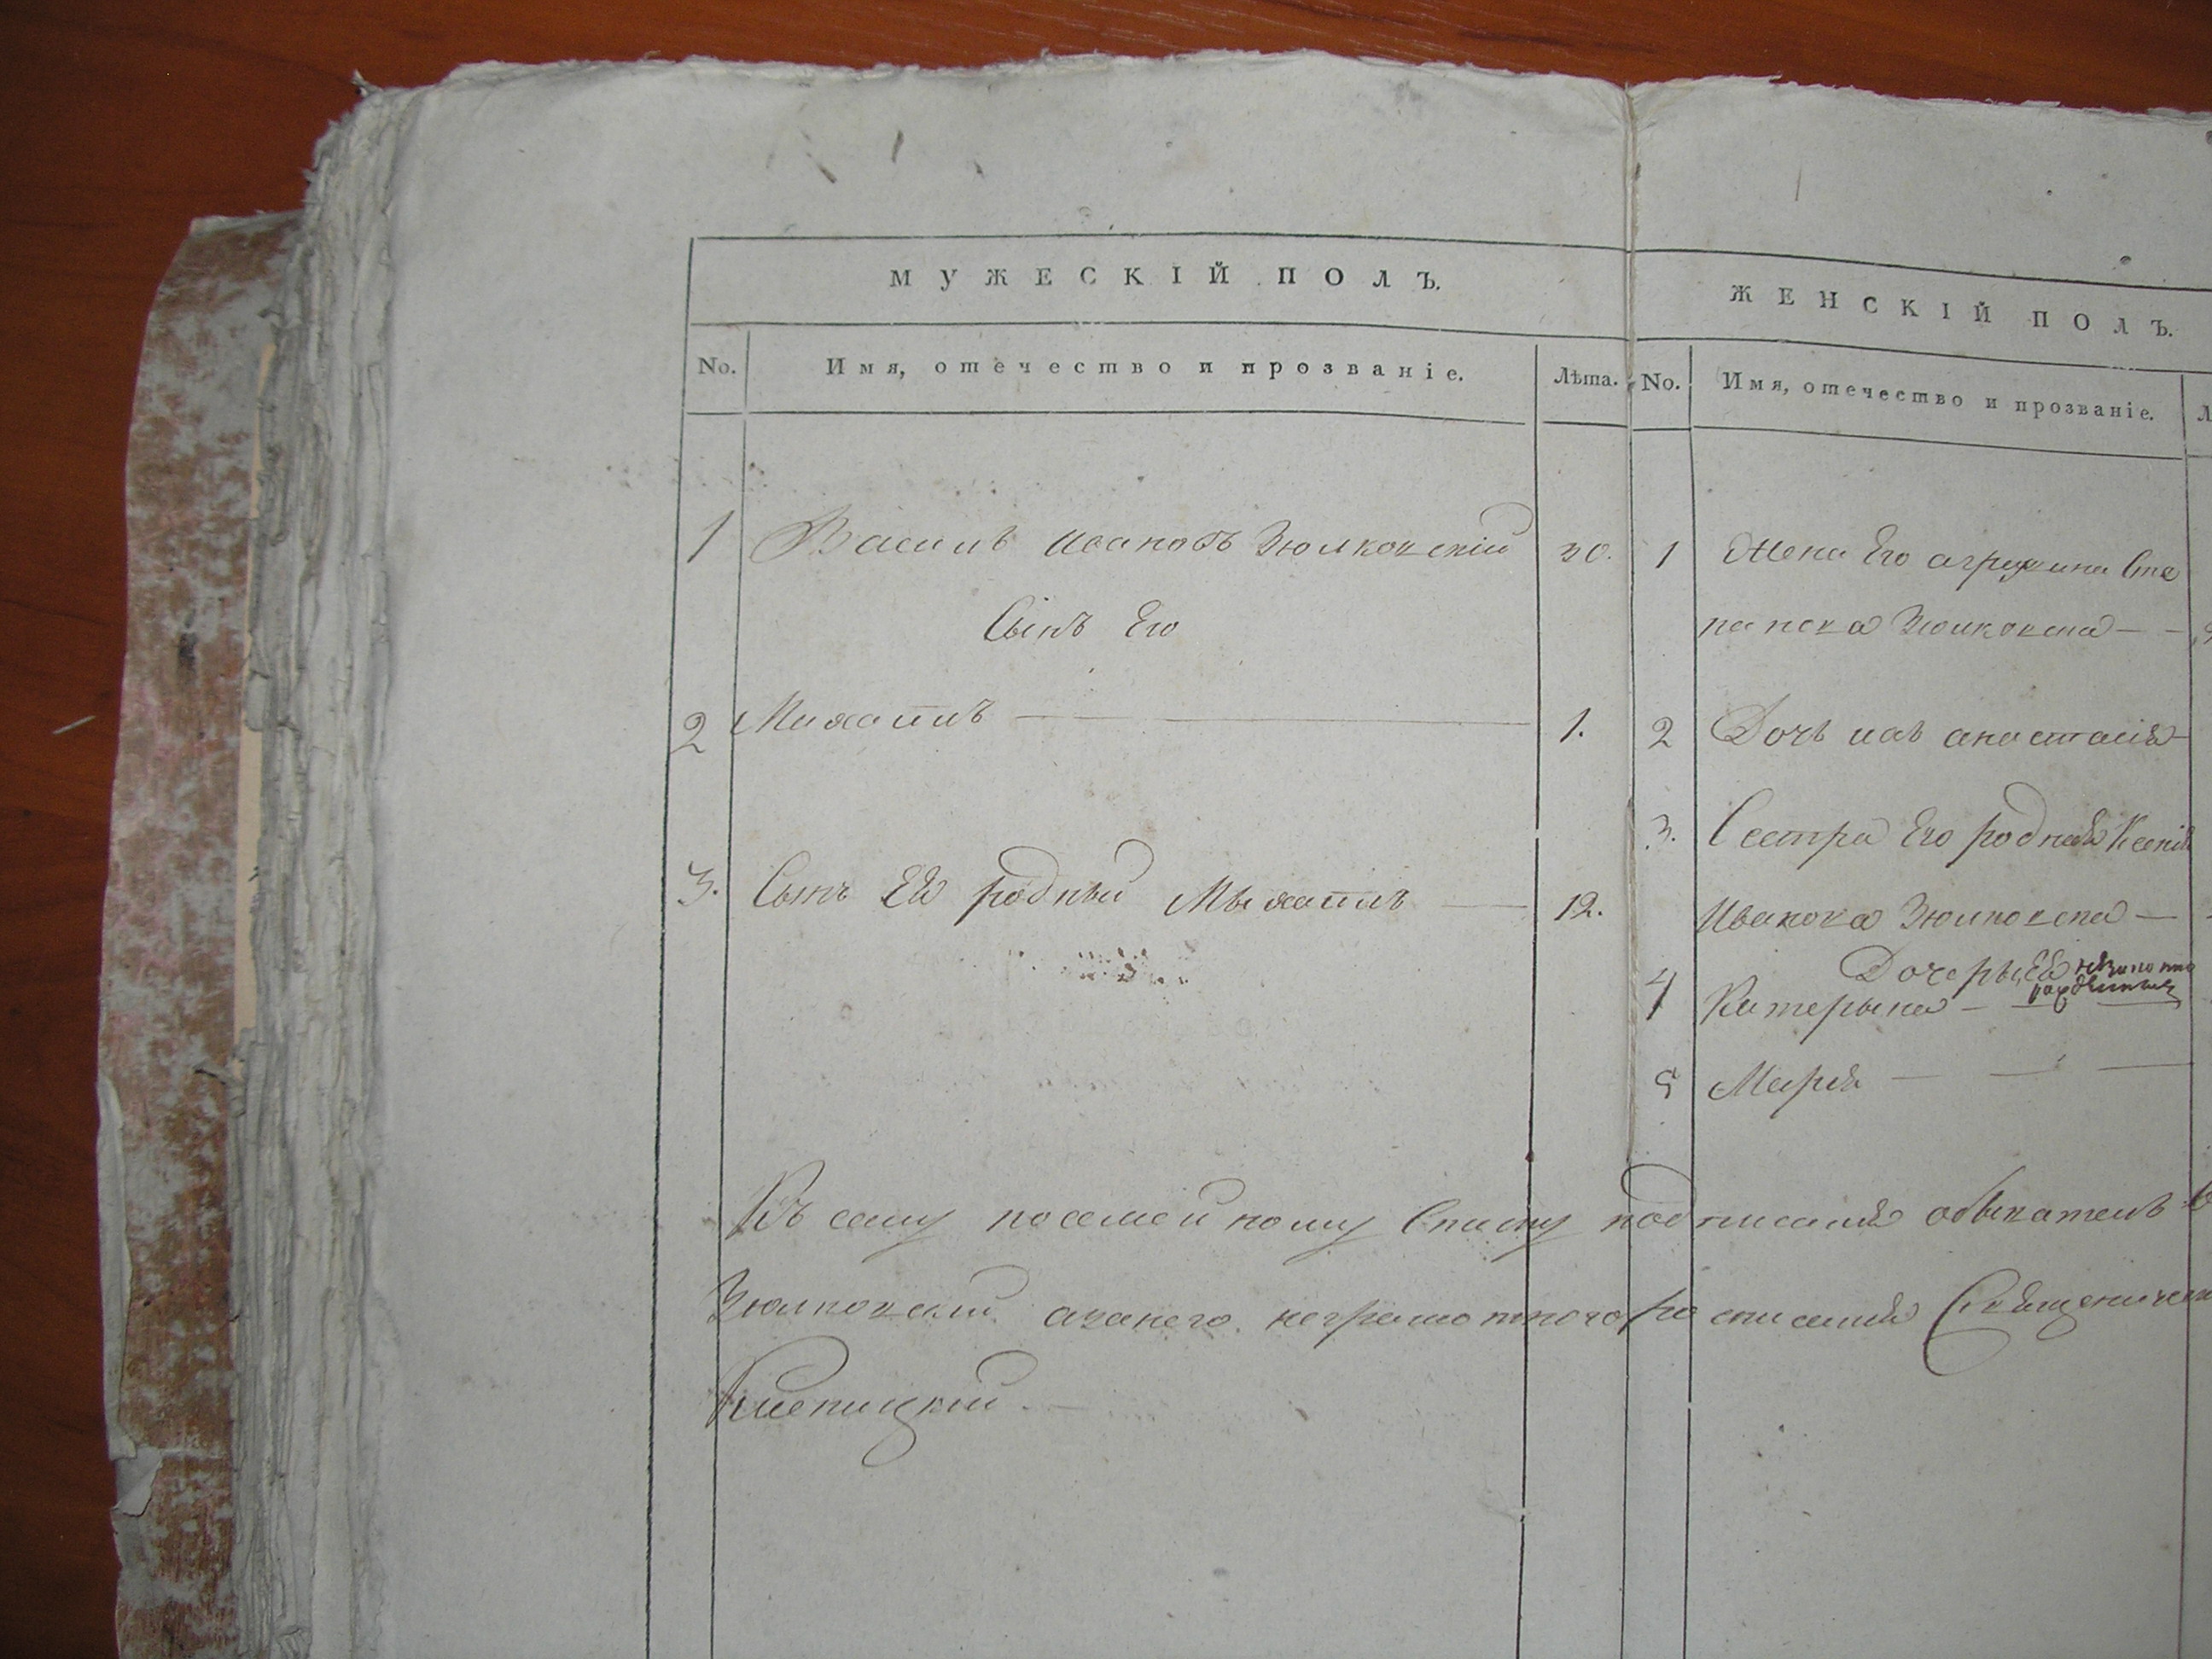 МУЖЕСКІЙ ПОЛЪ.
No. Имя, отечество и прозваніе. Лѣта.
1 Василь Ивановъ Зюлковскій 30.
Сынъ Его
2 Михаилъ 1.
3. Сынъ Ей родный Мыхаилъ 12.
ЖЕНСКІЙ ПОЛЪ.
No. Имя, отечество и прозваніе. Л
1 Жена Его агрипина Сте
панова Зюлковска
2 Дочь ихъ анастасія
3. Сестра Его родная Ксенія
Иванова Зюлковска
Дочеры, Ей
4 Катерына
5 Марія
Къ сему посемейному Списку подписался обыватель
Зюлковский азанего неграмотного росписался Священнически